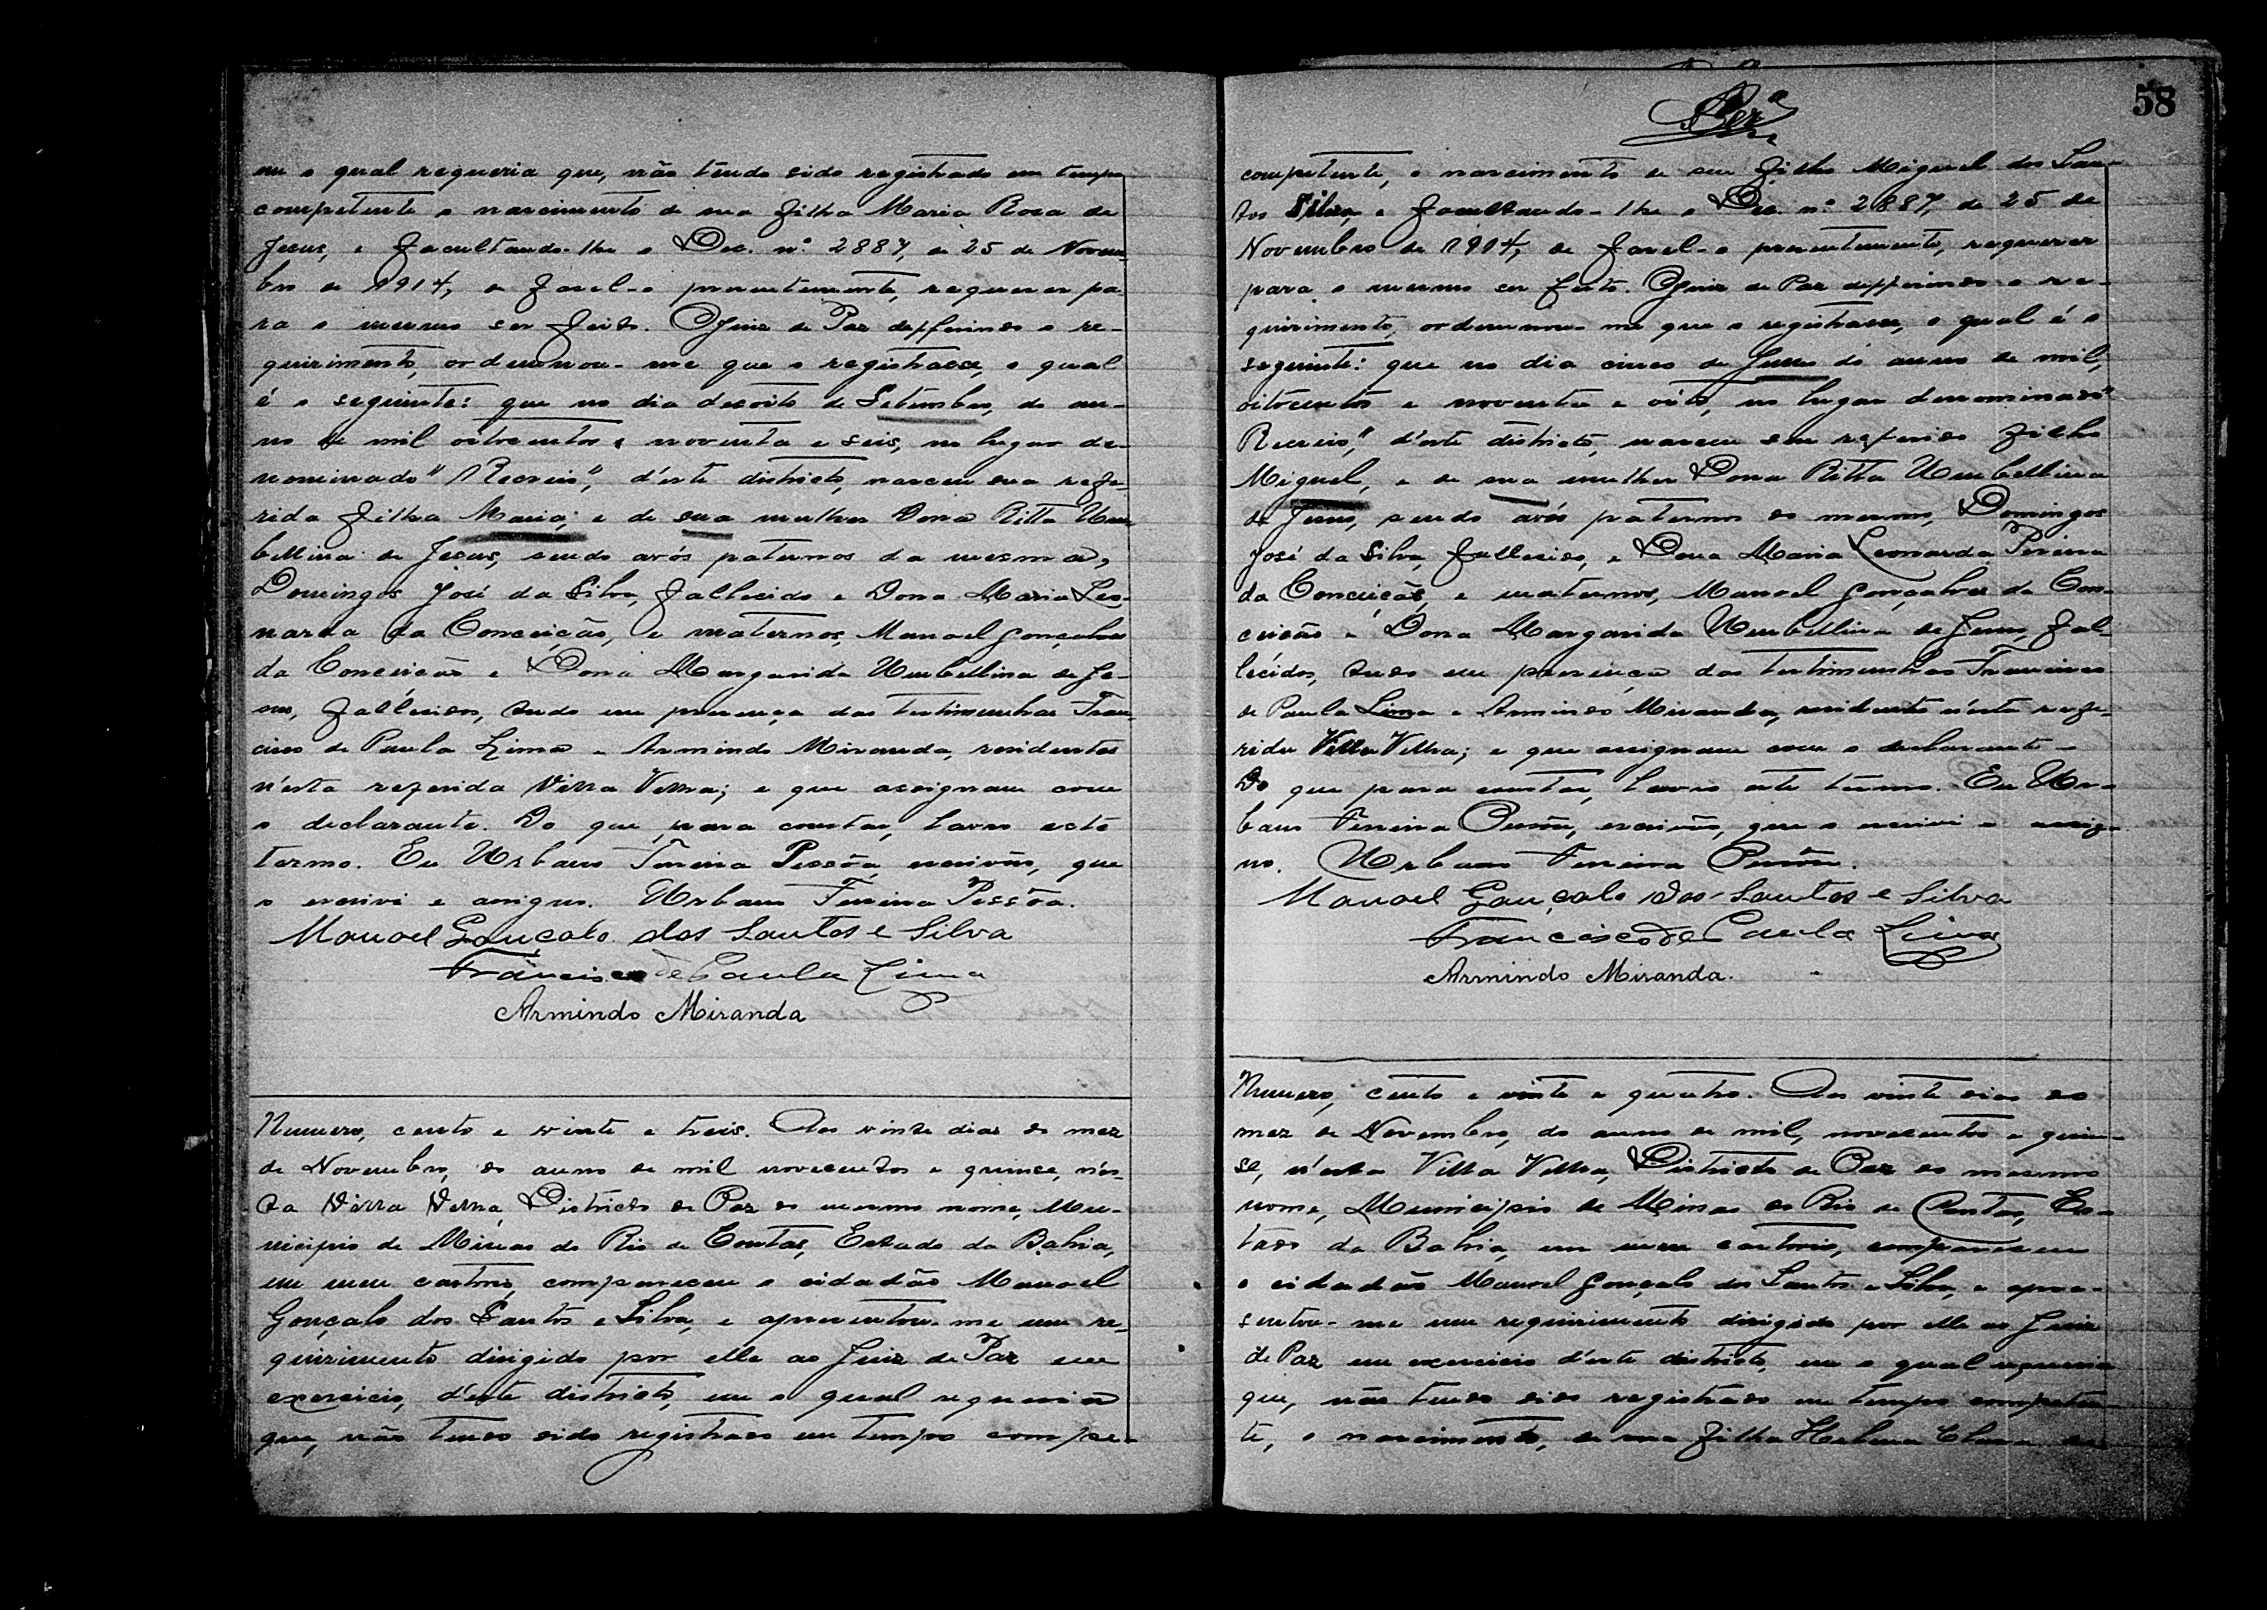 em o qual requeria que, não tendo sido registrado em tempo
competente o nascimento de sua filha Maria Rosa de
Jesus, e facultando-lhe o Dec. nº 2887, de 25 de Novem-
bro de 1914, de fazel-o presentemente, requerer pa-
ra o mesmo ser feito. O Juiz de Paz defferindo o re-
quirimento, ordennou-me que o registrasse, o qual
é o seguinte: que no dia desoito de Setembro, do an-
no de mil oitocentos e noventa e seis, no lugar de-
nominado "Recreio", d'este districto, nasceu sua refe-
rida filha Maria; e de sua mulher Dona Ritta Um-
bellina de Jesus, sendo avós paternos da mesma,
Domingos José da Silva, fallecido e Dona Maria Leo-
narda da Conceição, e maternos, Manoel Gonçalves
da Conceição e Dona Margarida Umbellina de Je-
sus, fallecidos, tudo em presença das testimunhas Fran-
cisco de Paula Lima e Armindo Miranda, residentes
n'esta referida Villa Velha; e que assignam com
o declarante. Do que para constar, lavro este
termo. Eu Urbano Ferreira Pessôa, escrivão, que
o escrivi e assigno. Urbano Ferreira Pessôa.
Manoel Gonçalo dos Santos e Silva
Francisco de Paula Lima
Armindo Miranda
Numero, cento e vinte e treis. Aos vinte dias do mez
de Novembro, do anno de mil novecentos e quinse, n'es-
ta Villa Velha, Districto de Paz do mesmo nome, Mu-
nicipio de Minas do Rio de Contas, Estado da Bahia,
em meu cartorio, compareceu o cidadão Manoel
Gonçalo dos Santos e Silva, e apresentou-me um re-
quirimento dirigido por elle ao Juiz de Paz em
exercicio, d'este districto, em o qual requeria
que, não tendo sido registrado em tempo compe-
58
competente, o nascimento de seu filho Miguel dos San-
tos Silva, e facultando-lhe o Dec. nº 2887, de 25 de
Novembro de 1914, de fazel-o presentemente, requerer
para o mesmo ser feito. O Juiz de Paz defferindo o re-
quirimento, ordennou-me que o registrasse, o qual é o
seguinte: que no dia cinco de do anno de mil,
oitocentos e noventa e oito, no lugar denominado "
Recreio," d'este districto, nasceu seu referido filho
Miguel, e de sua mulher Dona Ritta Umbellina
de Jesus, sendo avós paternos do mesmo, Domingos
José da Silva, fallecido, e Dona Maria Leonarda Pereira
da Conceição, e maternos, Manoel Gonçalves da Con-
ceição e Dona Margarida Umbellina de Jesus, fal-
lecidos, tudo em presença das testimunhas Francisco
de Paula Lima e Armindo Miranda, residentes n'esta refe-
rida Villa Velha; e que assignam com o declarante.
Do que para constar, lavro este termo. Eu Ur-
bano Ferreira Pessôa, escrivão, que o escrivi e assig-
no. Urbano Ferreira Pessôa.
Manoel Gonçalo dos Santos e Silva
Francisco de Paula Lima
Armindo Miranda.
Numero, cento e vinte e quatro. Aos vinte dias do
mez de Novembro, do anno de mil, novecentos e quin-
se, n'esta Villa Velha, Districto de Paz do mesmo
nome, Municipio de Minas do Rio de Contas, Es-
tado da Bahia, em meu cartorio, compareceu
o cidadão Manoel Gonçalo dos Santos e Silva, e apre-
sentou-me um requirimento dirigido por elle ao Juiz
de Paz em exercicio d'este districto, em o qual requeria
que, não tendo sido registrado em tempo competen-
te, o nascimento, de sua filha